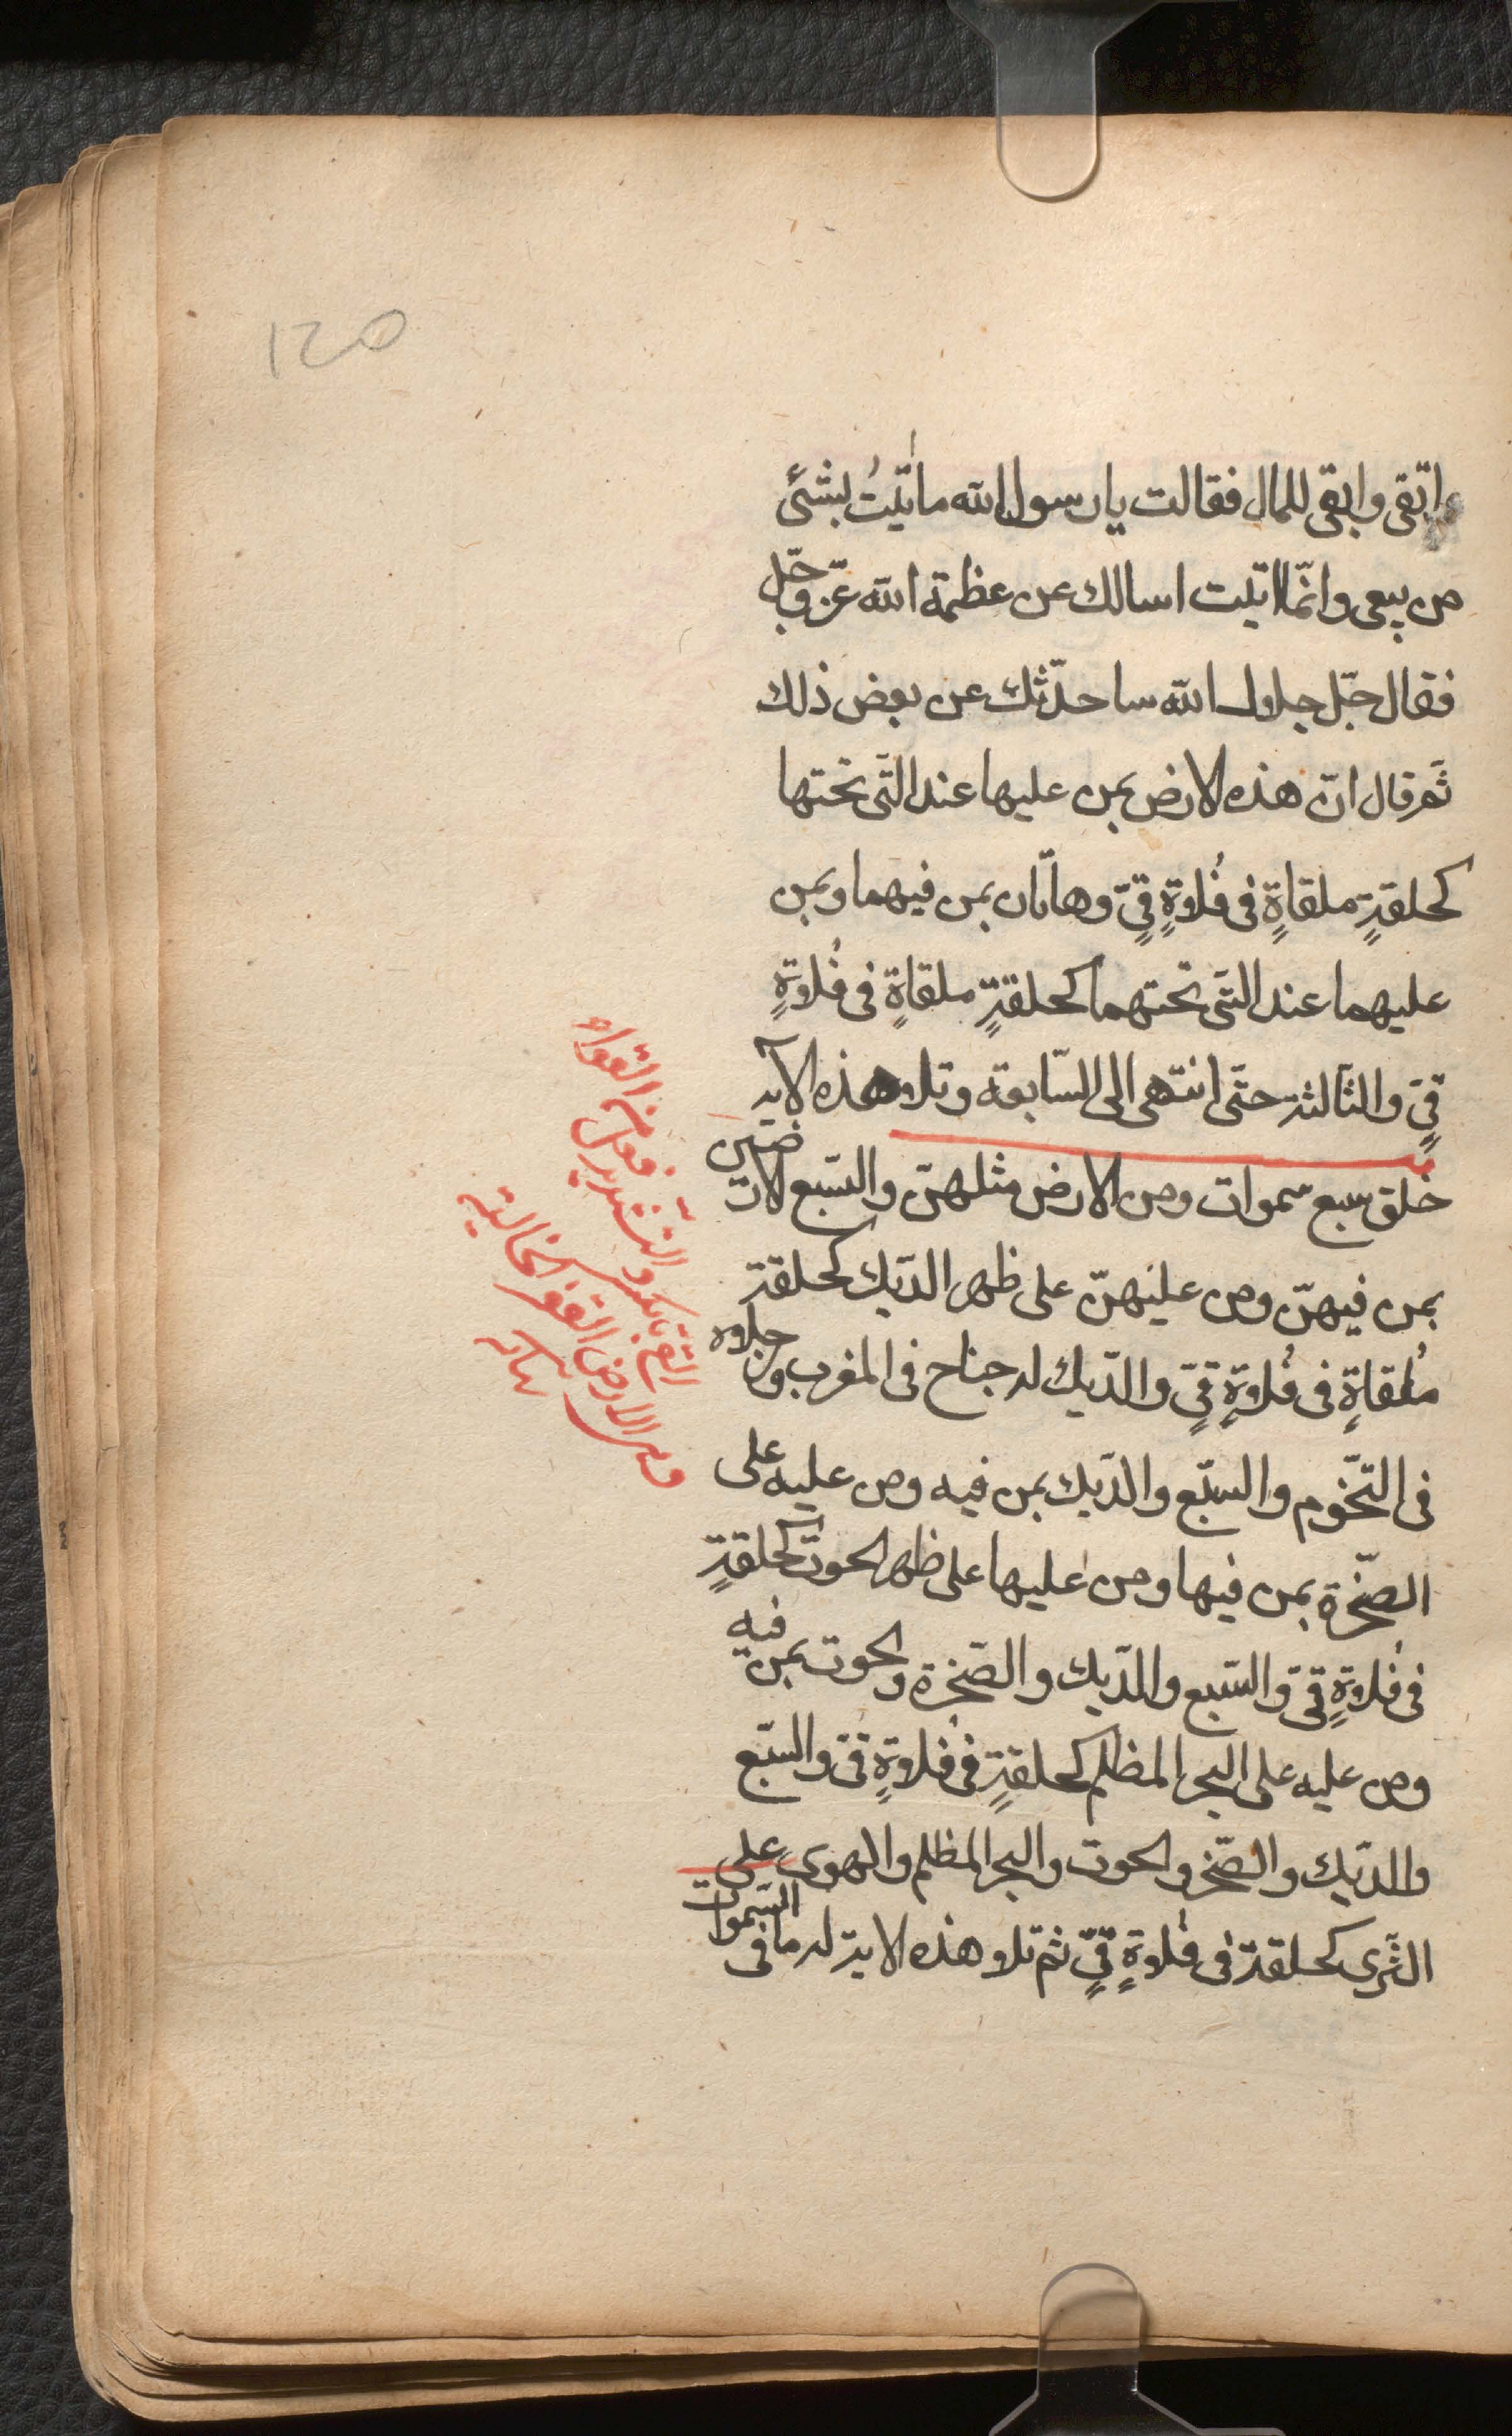 120
واتّقى وابقى للمال فقالت يارسول الله ماتّيتُ بشئ
من بيعى وانّما اتيت اسالك عن عظمة الله عزّ وجّل
فقال جّل جلاول الله ساحدّثك عن بعض ذلك
ثمّ قال انّ هذه الارض بمن عليها عند التّى تحتها
كحلقةٍ ملقاةٍ فى فُلاوةٍ قىٍّ وهاتان بمن فيهما وبمن
عليهما عند التّى تحتهما كحلقةٍ ملقاةٍ فى فُلاوةٍ
قىٍّ والثالثة حتّى انتهى الى السّابعة وتلا هذه الآية
خلق سبع سموات ومن الارض مثلهنّ والسّبع الارضين
بمن فيهنّ ومن عليهنّ على ظهر الدّيك كحلقة
مُلقاةٍ فى فُلاوةٍ قىٍّ والدّيك له جناح فى المغرب ورجلاه
فى التّخوم والسبّع والدّيك بمن فيه ومن عليه على
الصّخرة بمن فيها ومن عليها على ظهر الحوت كحلقةٍ
فى فُلاوةٍ قىّ والسّبع والدّيك والصّخرة والحوت بمن فيه
ومن عليه على البحر المظلم كحلقةٍ فى فُلاوةٍ قىّ والسبّع
والدّيك والصّخر والحوت والبحر المظلم والهوى على
الثّرى كحلقة فى فُلاوةٍ قىٍّ ثم تلا هذه الاية له ما فى السّموات
القى بالكسر والتشديد فعل من القواء
وهى الارض القفر الخالية